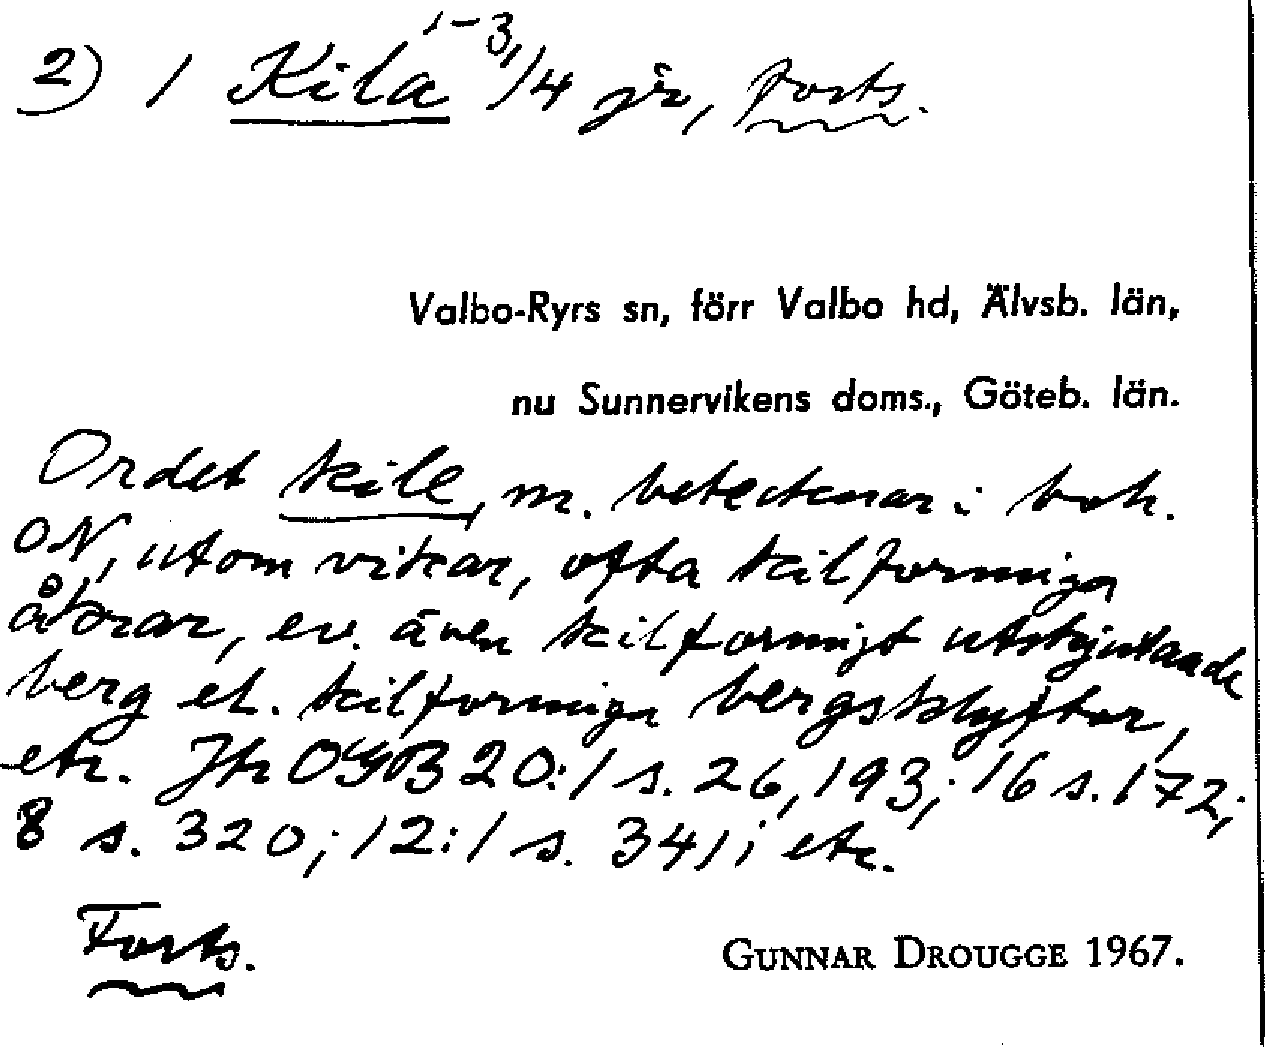 2) 1 Kila 1-3, 1/4 jr, forts.
Valbo-Ryrs sn, förr Valbo hd, Älvsb. län,
nu Sunnervikens doms., Göteb. län.
Ordet kile, m. betecknar i boh.
ON, utom vikar, ofta kilformiga
åkrar, ev. även kilformigt utskjutande
berg el. kilformiga bergsklyftor,
etc. Jfr OGB 20:1 s. 26, 193; 16 s. 172;
8 s. 320; 12:1 s. 341; etc.
Forts.
GUNNAR DROUGGE 1967.